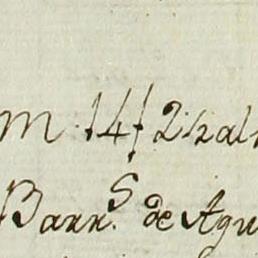 m 14ƒ 2½ al
Barr.ˢ de Agu